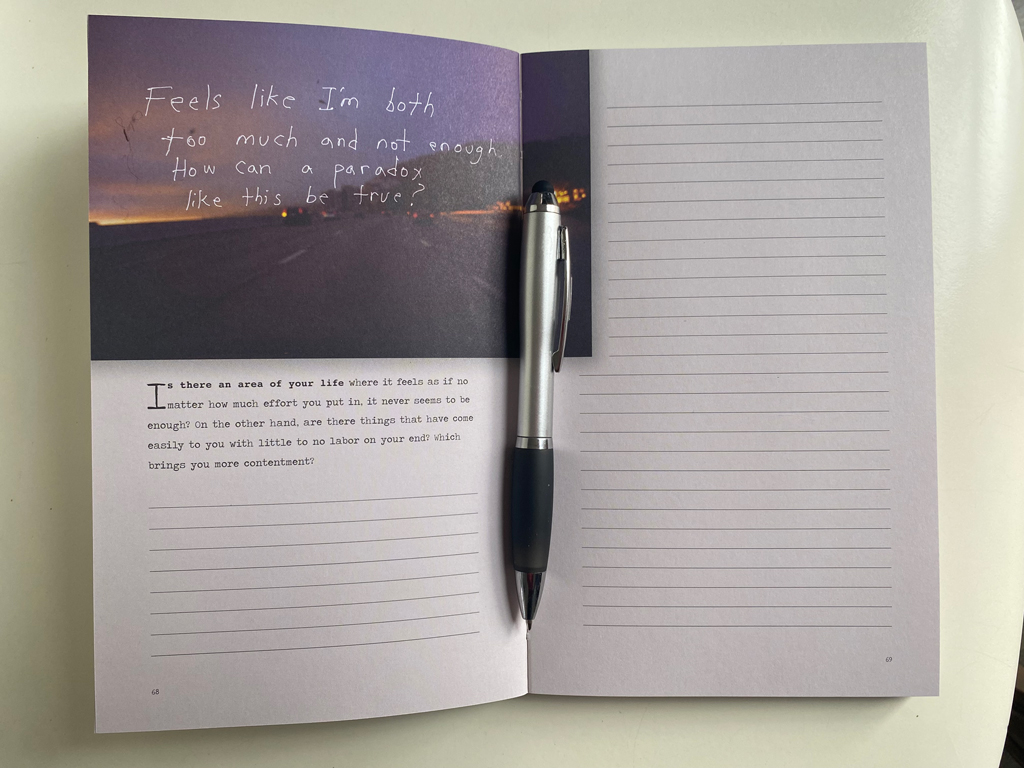 Feels like I'm both
too much and not enough.
How can a paradox
like this be true?
Is there an area of your life where it feels as if no
matter how much effort you put in, it never seems to be
enough? On the other hand, are there things that have come
easily to you with little to no labor on your end? Which
brings you more contentment?
68
69